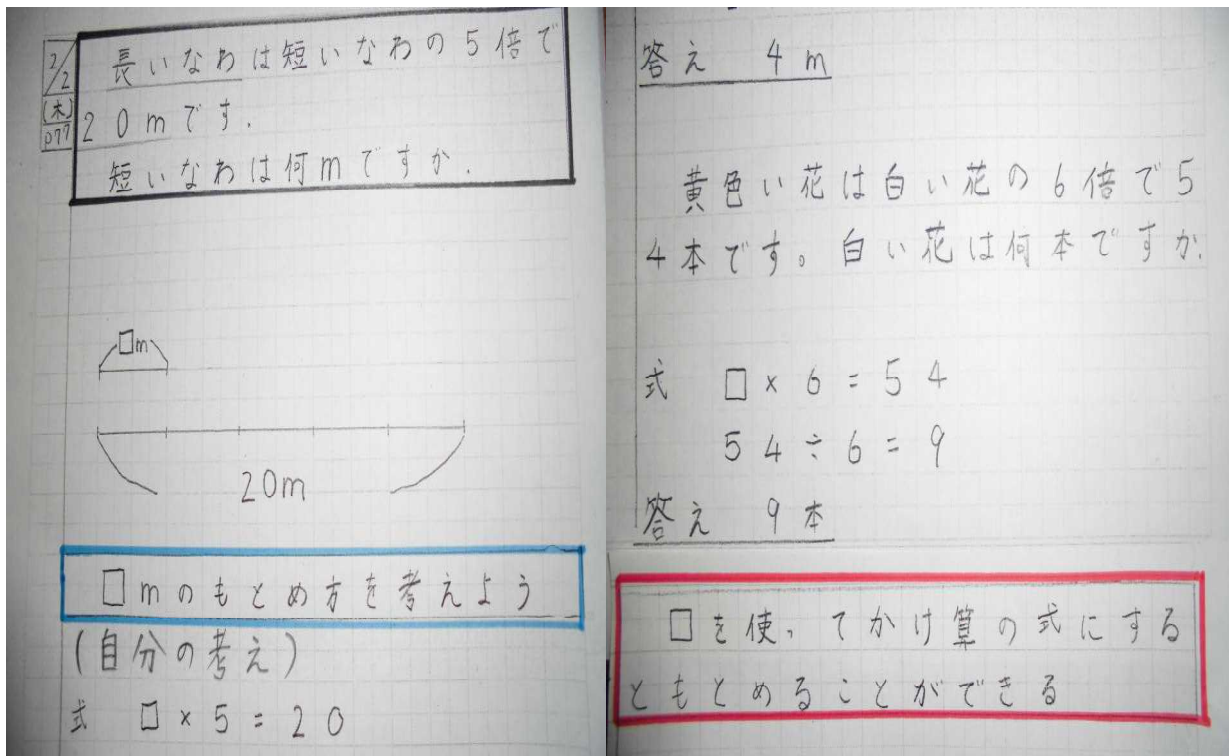 2/2
(木)
P77
長いなわは短いなわの5倍で
20mです.
短いなわは何mですか.
□m
20m
□mのもとめ方を考えよう
(自分の考え)
式 □×5=20
答え 4m
黄色い花は白い花の6倍で5
4本です。白い花は何本ですか.
式 □×6=54
54÷6=9
答え 9本
□を使ってかけ算の式にする
ともとめることができる